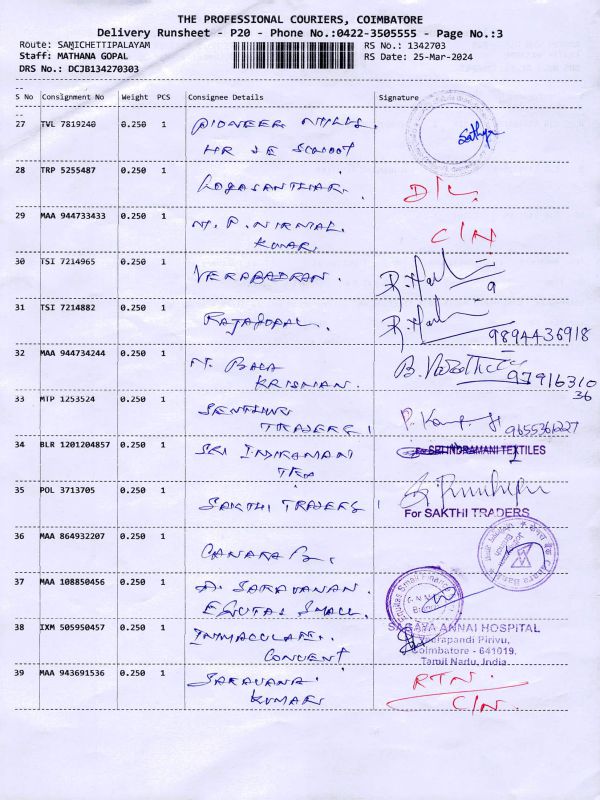 THE PROFESSIONAL COURIERS, COIMBATORE
Delivery Runsheet - P20 - Phone No.:0422-3505555 - Page No.:3
Route: SAMICHETTIPALAYAM
RS No.: 1342703
Staff: MATHANA GOPAL
RS Date: 25-Mar-2024
DRS No.: DCJB134270303
S No Consignment No Weight PCS Consignee Details Signature
27 TVL 7819240 0.250 1 PIONEER MILLS.
HR SE SCHOOL
28 TRP 5255487 0.250 1
D/L.
29 MAA 944733433 0.250 1 M. P. NIRMAL
KUMAR.
C/N
30 TSI 7214965 0.250 1 VERABADRAN.
31 TSI 7214882 0.250 1 RAJAGOPAL.
9894436918
32 MAA 944734244 0.250 1 M. BALA
KRISHNAN.
97916310
36
33 MTP 1253524 0.250 1
TRADERS
9655361227
34 BLR 1201204857 0.250 1 SRI INDRAMANI
TEX
For SRI INDRAMANI TEXTILES
35 POL 3713705 0.250 1 SAKTHI TRADERS
For SAKTHI TRADERS
36 MAA 864932207 0.250 1 CANARA B.
37 MAA 108850456 0.250 1 A. SARAVANAN.
38 IXM 505950457 0.250 1 IMMACULATE.
CONVENT
SAHAYA ANNAI HOSPITAL
Veerapandi Pirivu,
Coimbatore - 641019.
Tamil Nadu, India
39 MAA 943691536 0.250 1 SARAVANA
KUMAR
RTN.
C/N.